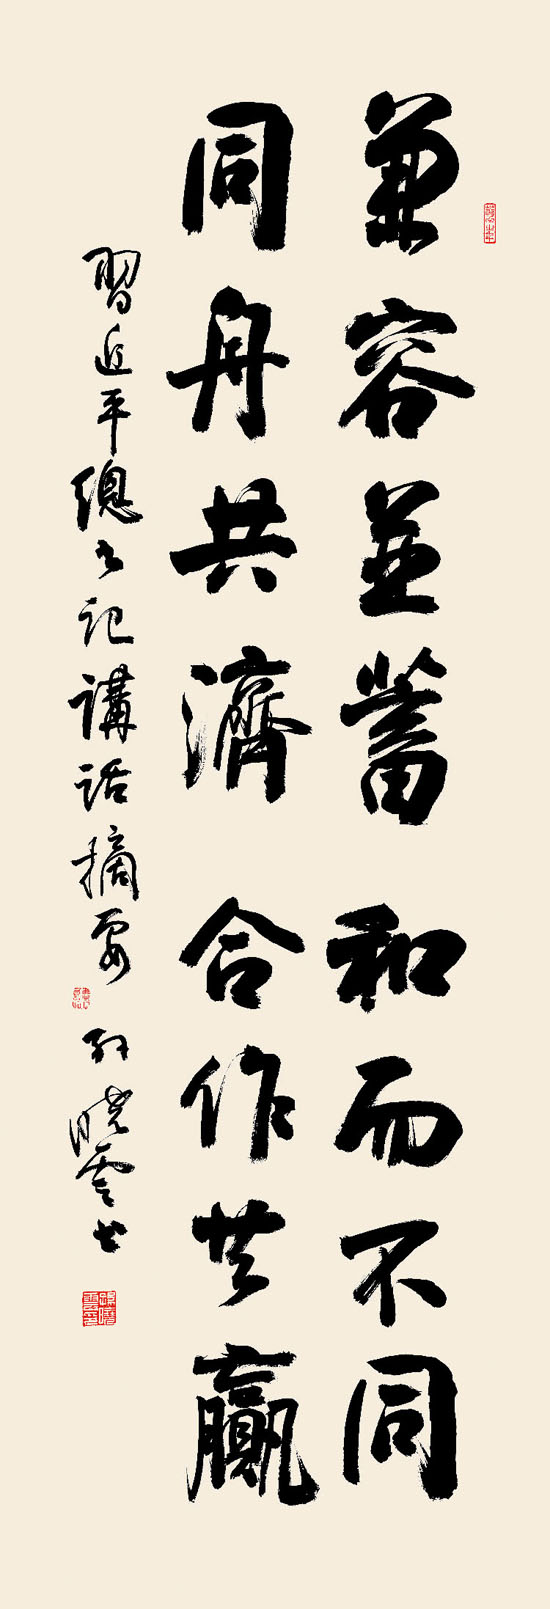 兼容並蓄和而不同
同舟共濟合作共贏
習近平總书記講話摘要
孙曉雲书